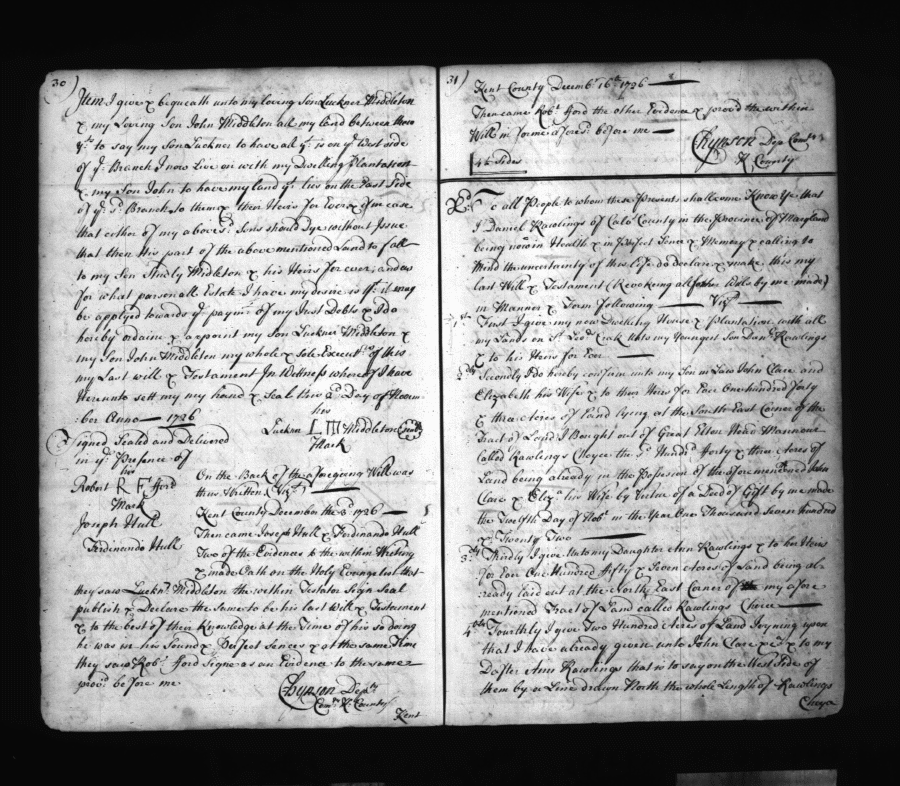 30)
Item I give & bequeath unto my Loving Son Luckner Middleton
& my Loving Son John Middleton all my land between them
yt. is to say my Son Luckner to have all yt. is on ye. West side
of ye. Branch I now Live on with my Dwelling Plantation
& my Son John to have my land yt. lies on the East Side
of ye. sd. Branch to them & their Heirs for Ever & In case
that either of my aboves.d Sons should Dye without Issue
that then His part of the above mentioned Land to fall
to my Son Midleton & his Heirs for ever, and as
for what parsonall Estate I have my desire is yt. it may
be applyed towards ye. paymt. of my Just Debts & I do
hereby ordain & appoint my Son Luckner Middleton &
my Son John Middleton my whole & sole Executrs. of this
my Last will & Testament In Wittness where of I have
hereunto sett my my hand & Seal this Day of Novem-
ber Anno 1726
his
Lucknr L III Middleton Seale
Mark
Signed Sealed and Delivered
in ye. Presence of
his
Robert R F fford
Mark
Joseph Hull
Ferdinando Hull
On the Back of the aforegoing Will was
thus Written (Vizt.)
Kent County December the 3 1726
Then came Joseph Hull & Ferdinando Hull
Two of the Evidences to the within Writing
& made Oath on the Holy Evangelist that
they saw Lucknr. Middleton the within Testator Sign Seal
publish & Declare the Same to be his last Will & Testament
& to the best of their Knowledge at the Time of his so doing
he was in his Sound & Perfect Sences & at the same Time
they saw Robt. fford Signe as an Evidence to the same
provd. before me
Chynson Depty
Comry. Kt. County
Kent
31)
Kent County Decembr. 16th. 1726
Then came Robt. fford the other Evidence & proved the within
Will in forme afores.d before me
Chynson Dep Comry
Kt. County
4 1/2 Sides
To all People to whom these Presents shall come Know Ye that
I Daniel Rawlings of Calvt. County in the Province of Maryland
being now in Health & in Perfect Sence & Memory & calling to
Mind the uncertainty of this life do declare & make this my
last Will & Testament (Revokeing all other Wills by me made)
in Manner & Form following Vizt.
1st. First I give my now Dwelling House & Plantation with all
my Lands on St. Leods. Creek unto my Youngest Son Danl. Rawlings
& to his Heirs for Ever
2dly Secondly I do hereby confirm unto my Son in Law John Clare and
Elizabeth his Wife & to their Heirs for Ever One hundred forty
& three Acres of Land lying at the South East Corner of the
Tract of Land I Bought out of Great Elton Head Mannour
Called Rawlings Choyce the sd. Hundd. forty & three Acres of
Land being already in the Possession of the afore mentioned John
Clare & Eliza. his Wife by Vertue of a Deed of Gift by me made
the Twelfth Day of Nobr. in the Year One Thousand Seven hundred
& Twenty Two
3dly Thirdly I give Unto my Daughter Ann Rawlings & to her Heirs
for Ever One Hundred fifty & Seven Acres of Land being al-
ready laid out at the North East Corner of my afore
mentioned Tract of Land called Rawlings Choice
4thly Fourthly I give Two Hundred Acres of Land Joyning upon
that I have already given unto John Clare & to my
Dafter Ann Rawlings that is to say on the West Side of
them by a Line drawn North the whole Length of Rawlings
Choyce